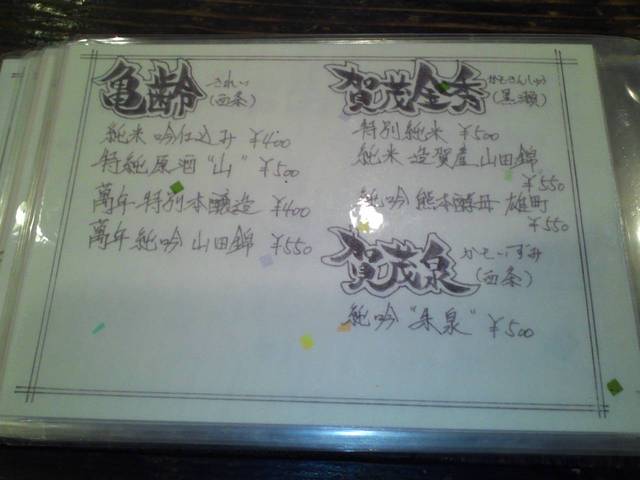 亀齢 きれい (西条)
純米吟仕込み ¥400
特純原酒"山" ¥500
萬年 特別本醸造 ¥400
萬年 純吟 山田錦 ¥550
賀茂金秀 かもきんしゅう (黒瀬)
特別純米 ¥500
純米 造賀産山田錦
¥550
純吟 熊本酵母 雄町
¥550
賀茂泉 かもいずみ (西条)
純吟"朱泉" ¥500